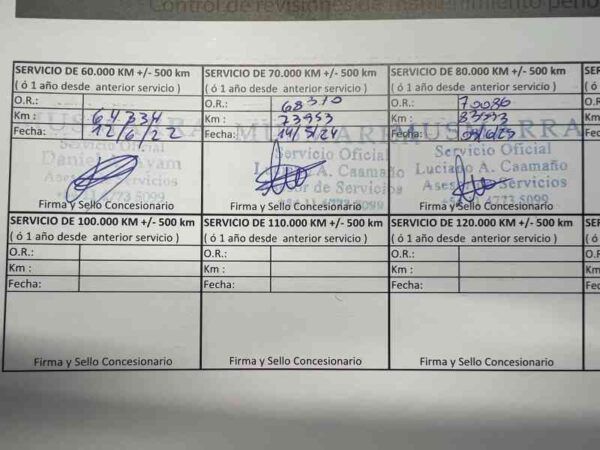 Control de revisiones de mantenimiento
SERVICIO DE 60.000 KM +/- 500 km
( ó 1 año desde anterior servicio )
O.R.:
Km : 64334
Fecha: 12/6/22
Servicio Oficial
Daniel
Asesor Servicios
4773 5099
Firma y Sello Concesionario
SERVICIO DE 70.000 KM +/- 500 km
( ó 1 año desde anterior servicio )
O.R.: 68310
Km : 73953
Fecha: 14/5/24
Servicio Oficial
A. Caamaño
de Servicios
4773 5099
Firma y Sello Concesionario
SERVICIO DE 80.000 KM +/- 500 km
( ó 1 año desde anterior servicio )
O.R.: 70086
Km :
Fecha:
Servicio Oficial
Luciano A. Caamaño
Servicios
4773 5099
Firma y Sello Concesionario
SERVICIO DE 100.000 KM +/- 500 km
( ó 1 año desde anterior servicio )
O.R.:
Km :
Fecha:
Firma y Sello Concesionario
SERVICIO DE 110.000 KM +/- 500 km
( ó 1 año desde anterior servicio )
O.R.:
Km :
Fecha:
Firma y Sello Concesionario
SERVICIO DE 120.000 KM +/- 500 km
( ó 1 año desde anterior servicio )
O.R.:
Km :
Fecha:
Firma y Sello Concesionario